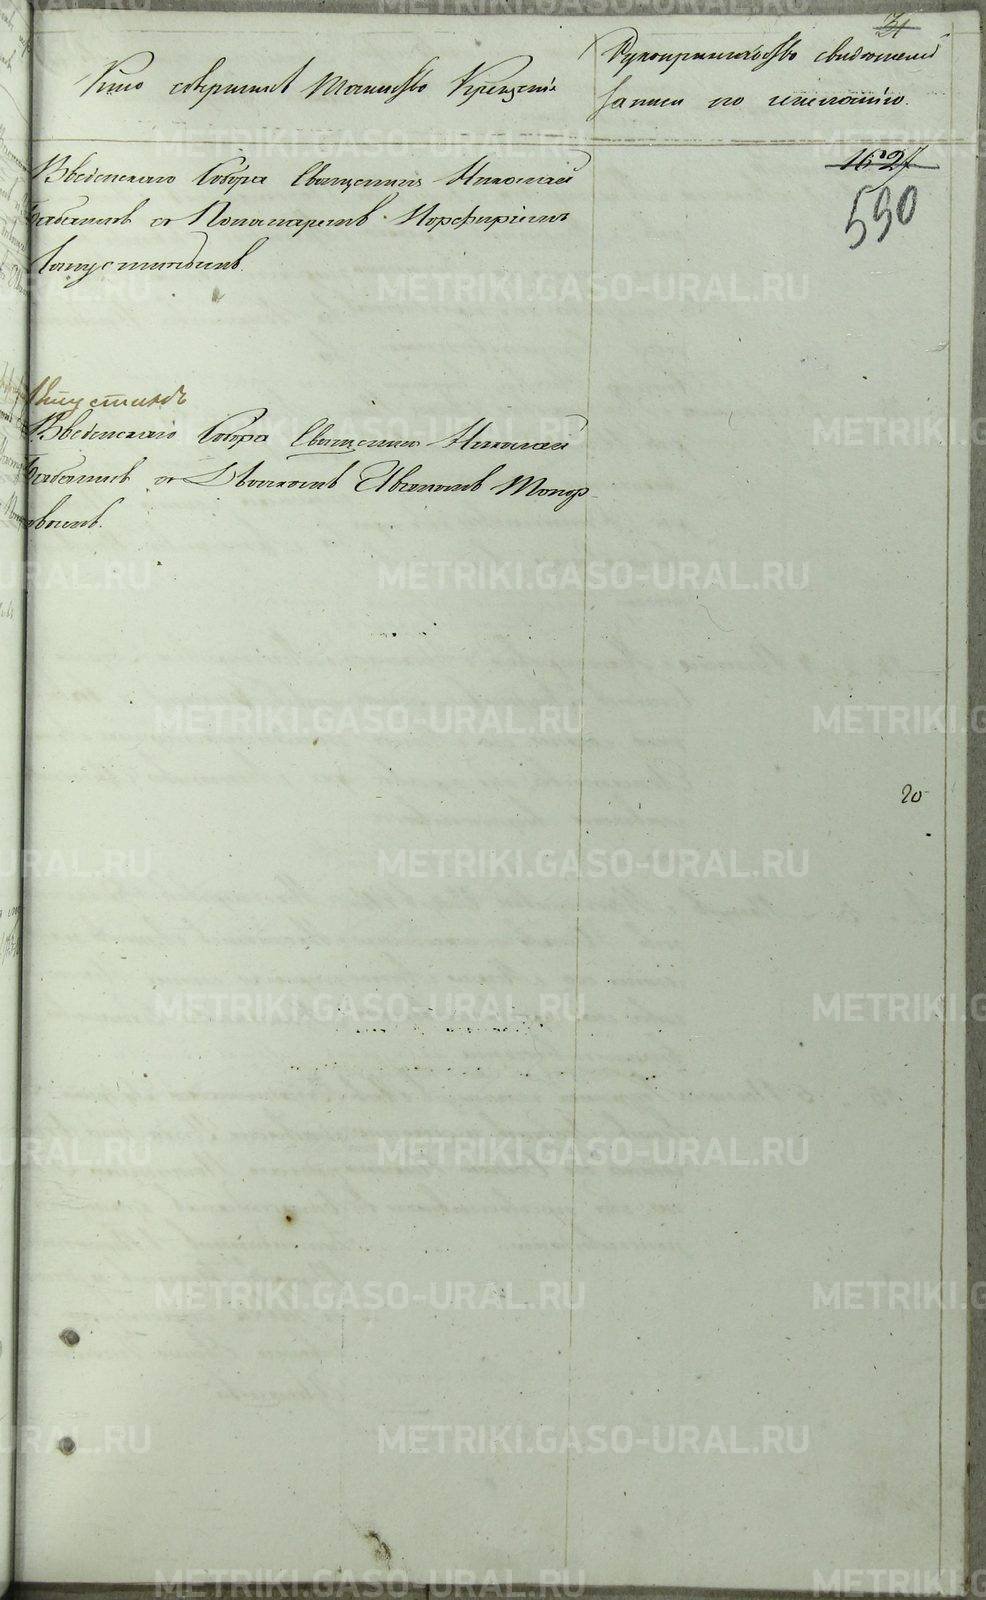 31
Кто совершилъ Таинство Крещенія
Рукоприкладство свидѣтелей
записи по желанію.
1627
590
Введенскаго Собора Священникъ Николай
Бабановъ съ Пономаремъ Порфиріемъ
Капустинымъ.
Введенскаго Собора Священникъ Николай
Бабановъ съ Дьячкомъ Топор
ковымъ.
20
METRIKI.GASO-URAL.RU